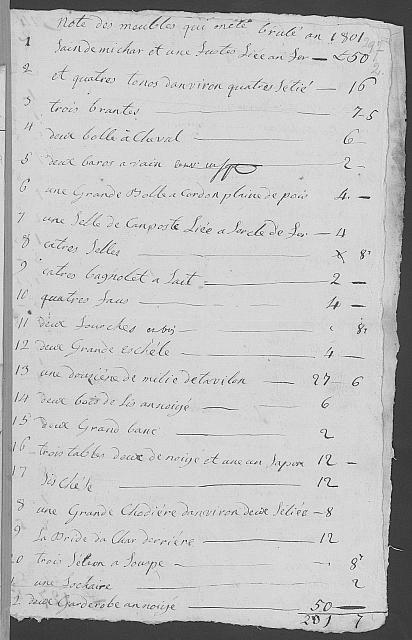 Note des meubles qui mété brulé an 1801
1 Saindemichar et une Liée an fer — £ 50
2 et quatres tonos danviron quatres Setié — 16
3 trois brantes — 7-5
4 deux bolle à Cheval — 6
5 deux baros a vain — 2 -
6 une Grande Bolle a Cordon plaine de pois 4 -
7 une Selle de Canposte Liée a Sercle de fer — 4
8 catres Selles — 8
9 catres bagnolet a Lait — 2 -
10 quatres Saus — 4 -
11 deux fourches — 8
12 deux Grande eschéle — 4 -
13 une dousiéne de milié detavilon — 27 - 6
14 deux bois de Lis annoijé — 6
15 deux Grand banc — 2
16 trois tables deux de noijé et une un Sapon 12 -
17 Sis Chése — 12
8 une Grande Chociére danviron deux Setiée - 8
9 La Bride da Char derriére — 12
20 trois a Souppe — 8
1 une — 2
2 deux Garderobe an noijé — 50 —
201 7